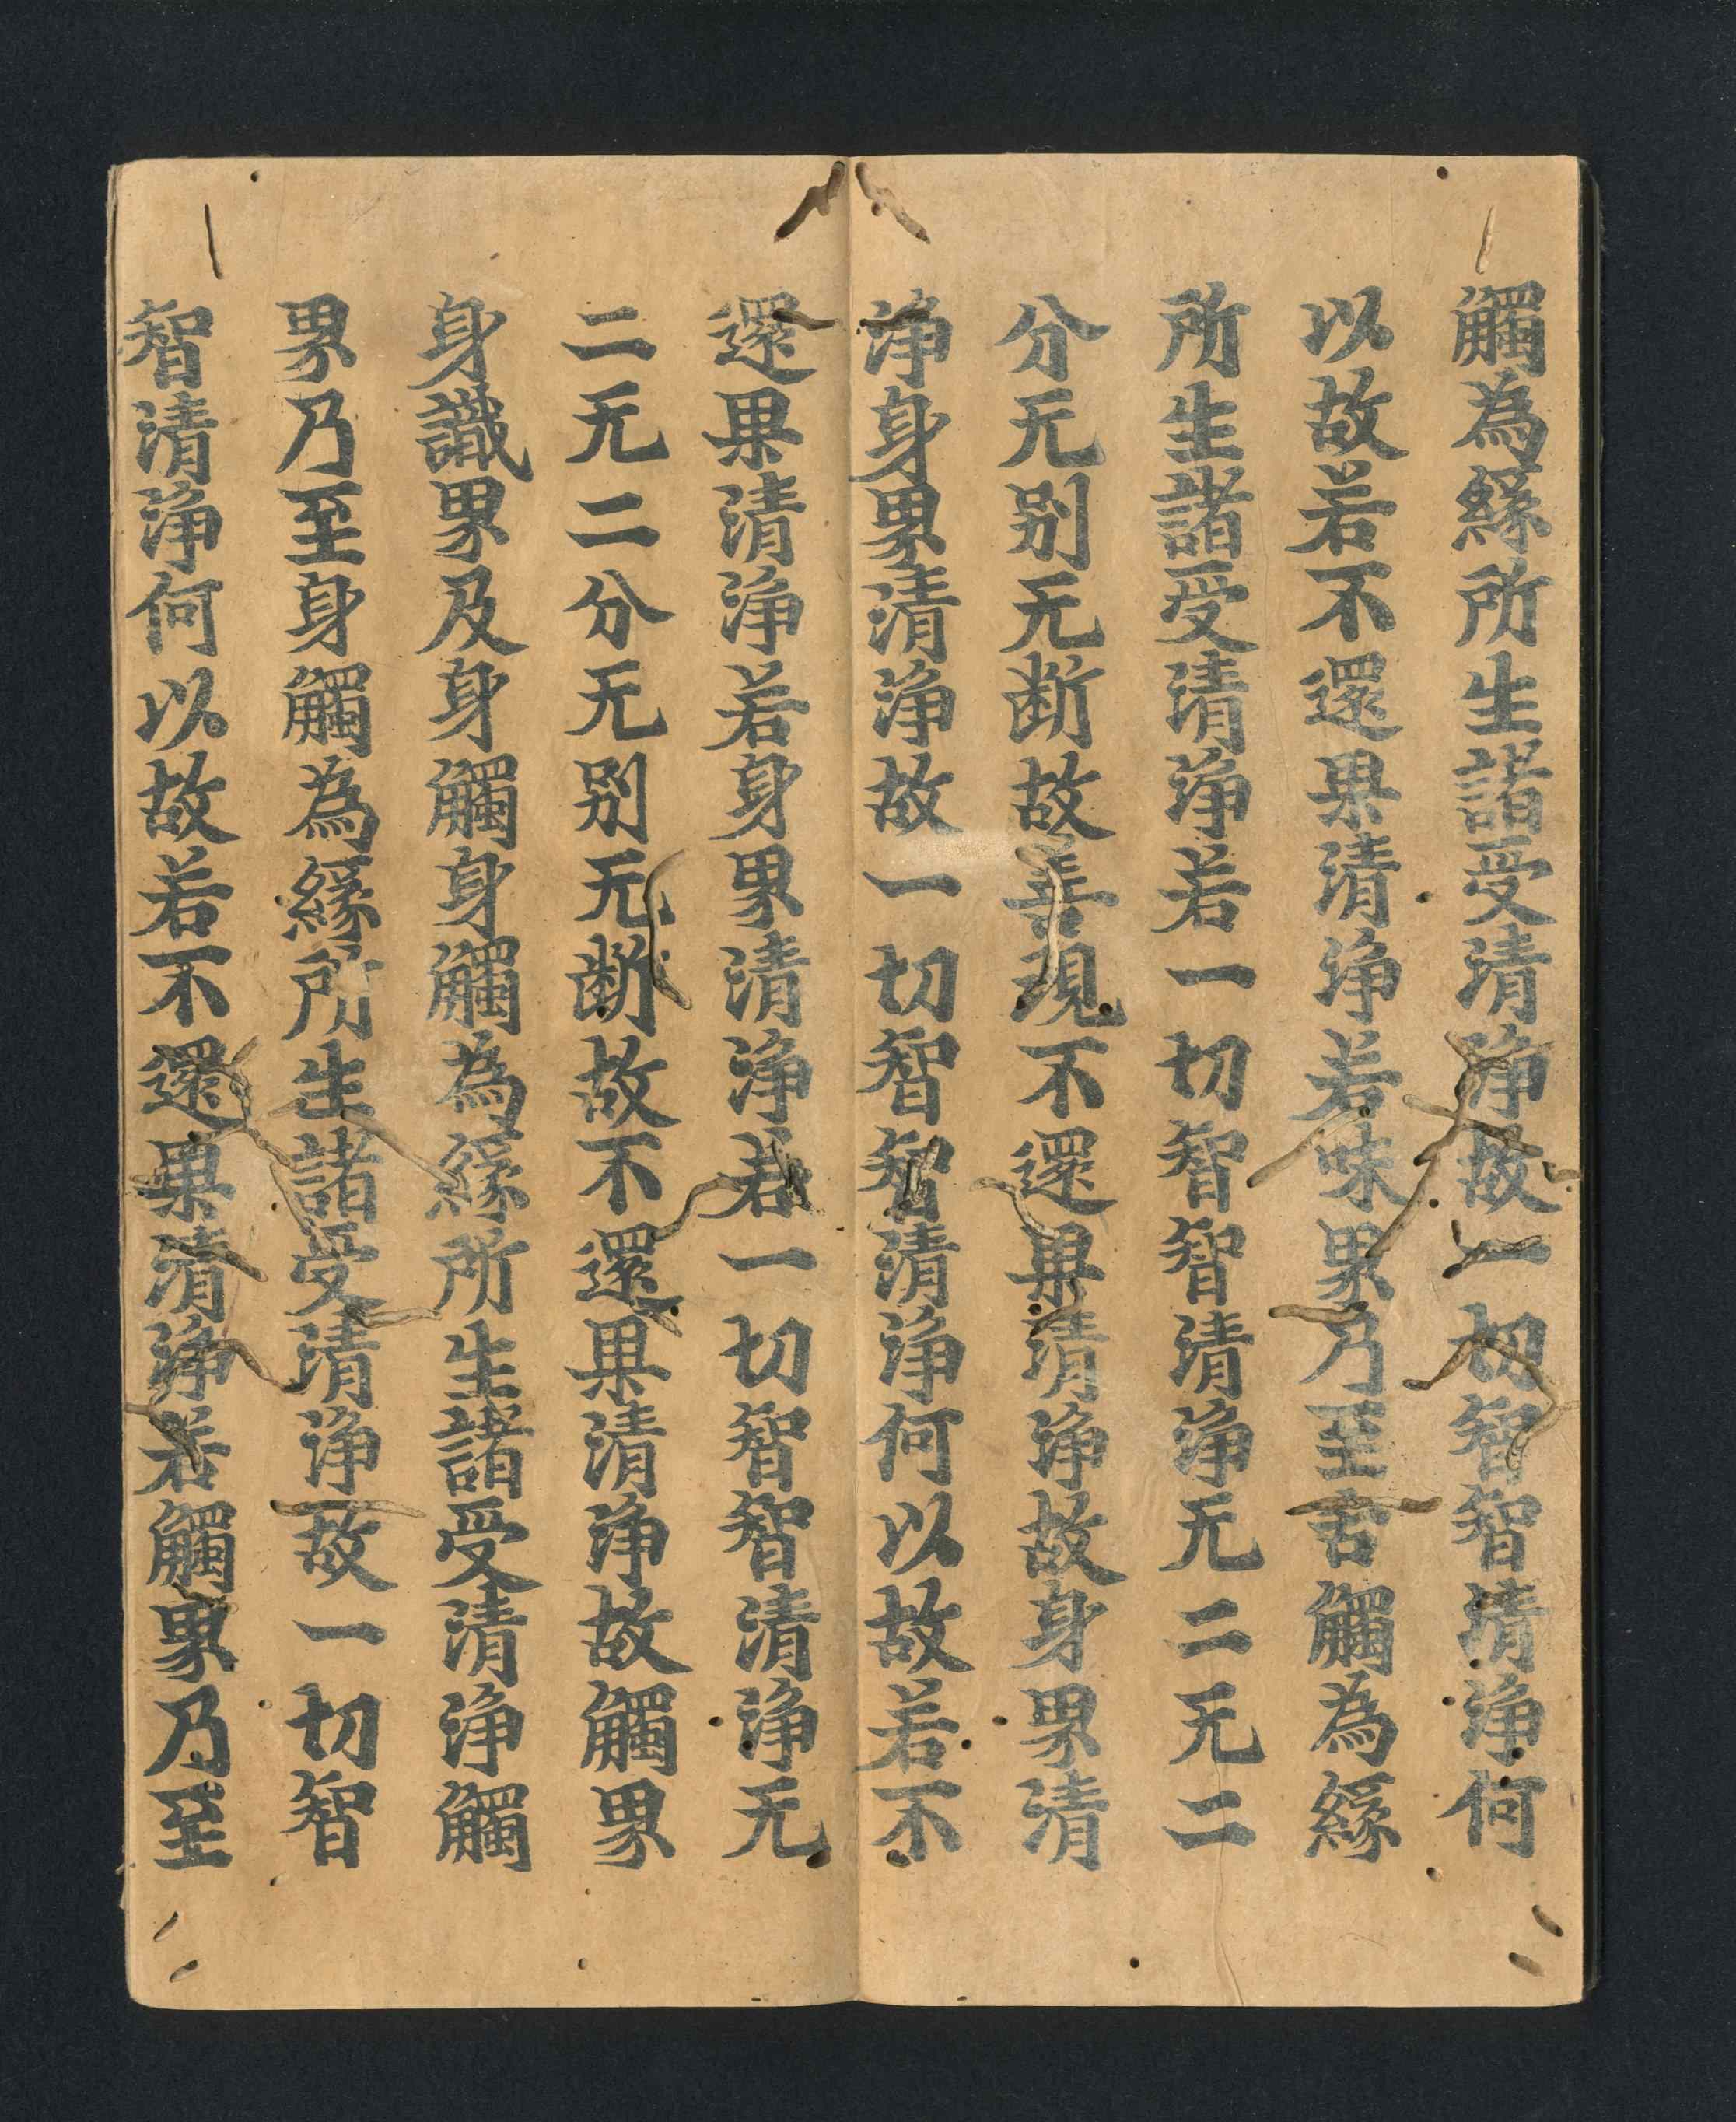 觸為緣所生諸受清淨故一切智智清淨何
以故若不還果清淨若味界乃至舌觸為緣
所生諸受清淨若一切智智清淨无二无二
分无别无断故善現不還果清淨故身界清
淨身界清淨故一切智智清淨何以故若不
還果清淨若身界清淨若一切智智清淨无
二无二分无别无断故不還果清淨故觸界
身識界及身觸身觸為緣所生諸受清淨觸
界乃至身觸為緣所生諸受清淨故一切智
智清淨何以故若不還果清淨若觸界乃至